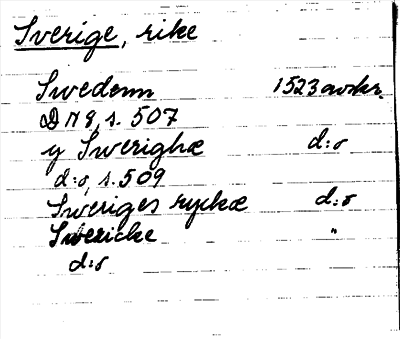 Sverige, rike
Swedenn 1523 avskr.
DN 8, s. 507
y Swerighæ d:o
d:o, s. 509
Sweriges ryckæ d:o
Swericke "
d:o